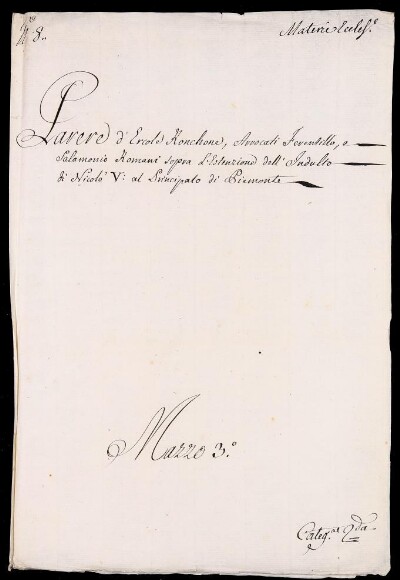 N.º 8.
Materie Eccles.e
Parere d'Ercole Ronchone, Avvocati Terentillo, e
Salomonio Romani sopra l'estenzione dell'Indulto
di Nicolò V. al Principato di Piemonte
Mazzo 3.º
Categ.a 2da